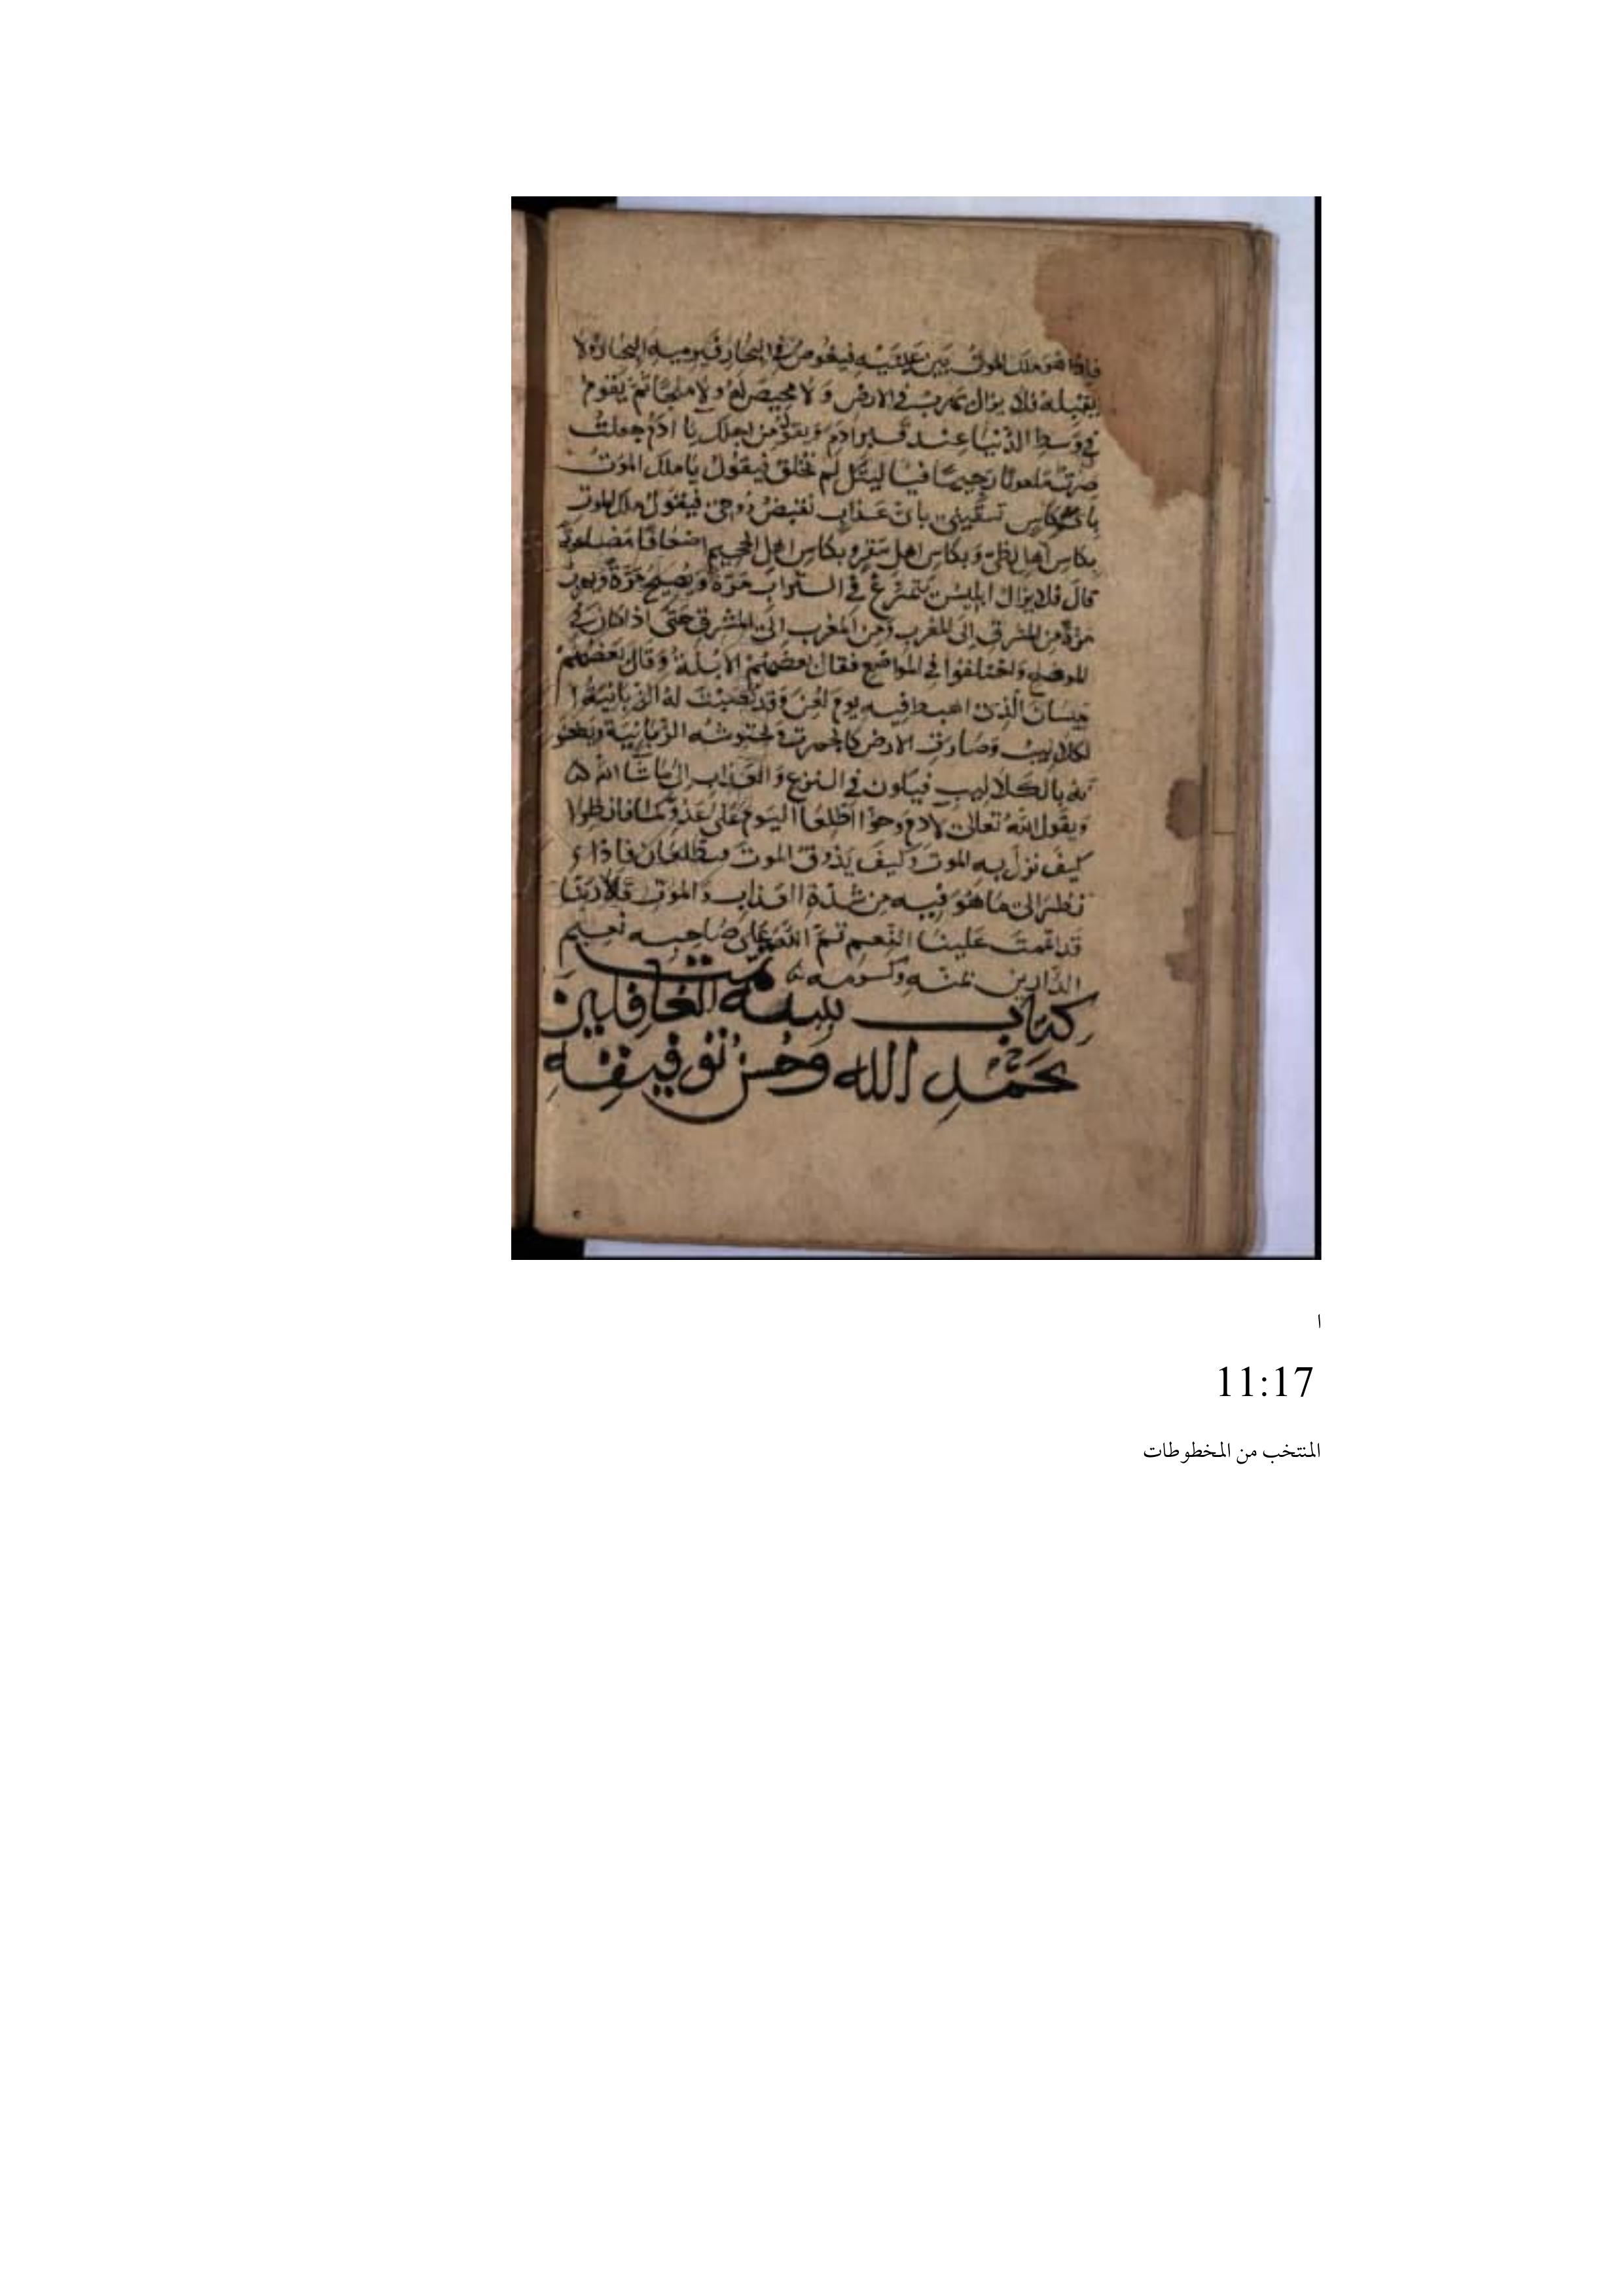 فاذا هو ملك الموت بين عينيه فيغوص في البحار فيرميه البحار ولا
يقبله فلا يزال يهرب في الارض ولا محيص له ولا ملجا ثم يقوم
في وسط الدنيا عند قبر ادم ويقول من اجلك يا ادم جعلت
صرت ملعونا رجيما فيا ليتني لم نخلق فيقول يا ملك الموت
باي كاس تسقيني باي عذاب تقبض روحي فيقول ملك الموت
بكاس اهل لظى وبكاس اهل سقر وبكاس اهل الجحيم اضعافا مضاعفة
قال فلا يزال ابليس يتمرغ في التراب مرة ويصيح مرة ويهرب
مرة من المشرق الى المغرب ومن المغرب الى المشرق حتى اذا كان في
الموضع واختلفوا في المواضع فقال بعضهم الابلة وقال بعضهم
الذي اهبط فيه يوم لعن وقد نصبت له الزبانية ا
لكلاليب وصارت الارض كالجمرة وتحتوشه الزبانية
بالكلاليب في النزع والعذاب الى ما شا الله
ويقول الله تعالى لادم وحوا اطلعا اليوم على عدوكما فانظرا
كيف نزل به الموت وكيف يذوق الموت فيطلعان فاذا
نظرا الى ما هو فيه من شدة العذاب والموت قالا ربنا
قد اتممت علينا النعم تم اللهم على صاحبه نعيم
الدارين بمنه وكرمه
تمت
كتاب تنبيه الغافلين
بحمد الله وحسن توفيقه
ا
11:17
المنتخب من المخطوطات